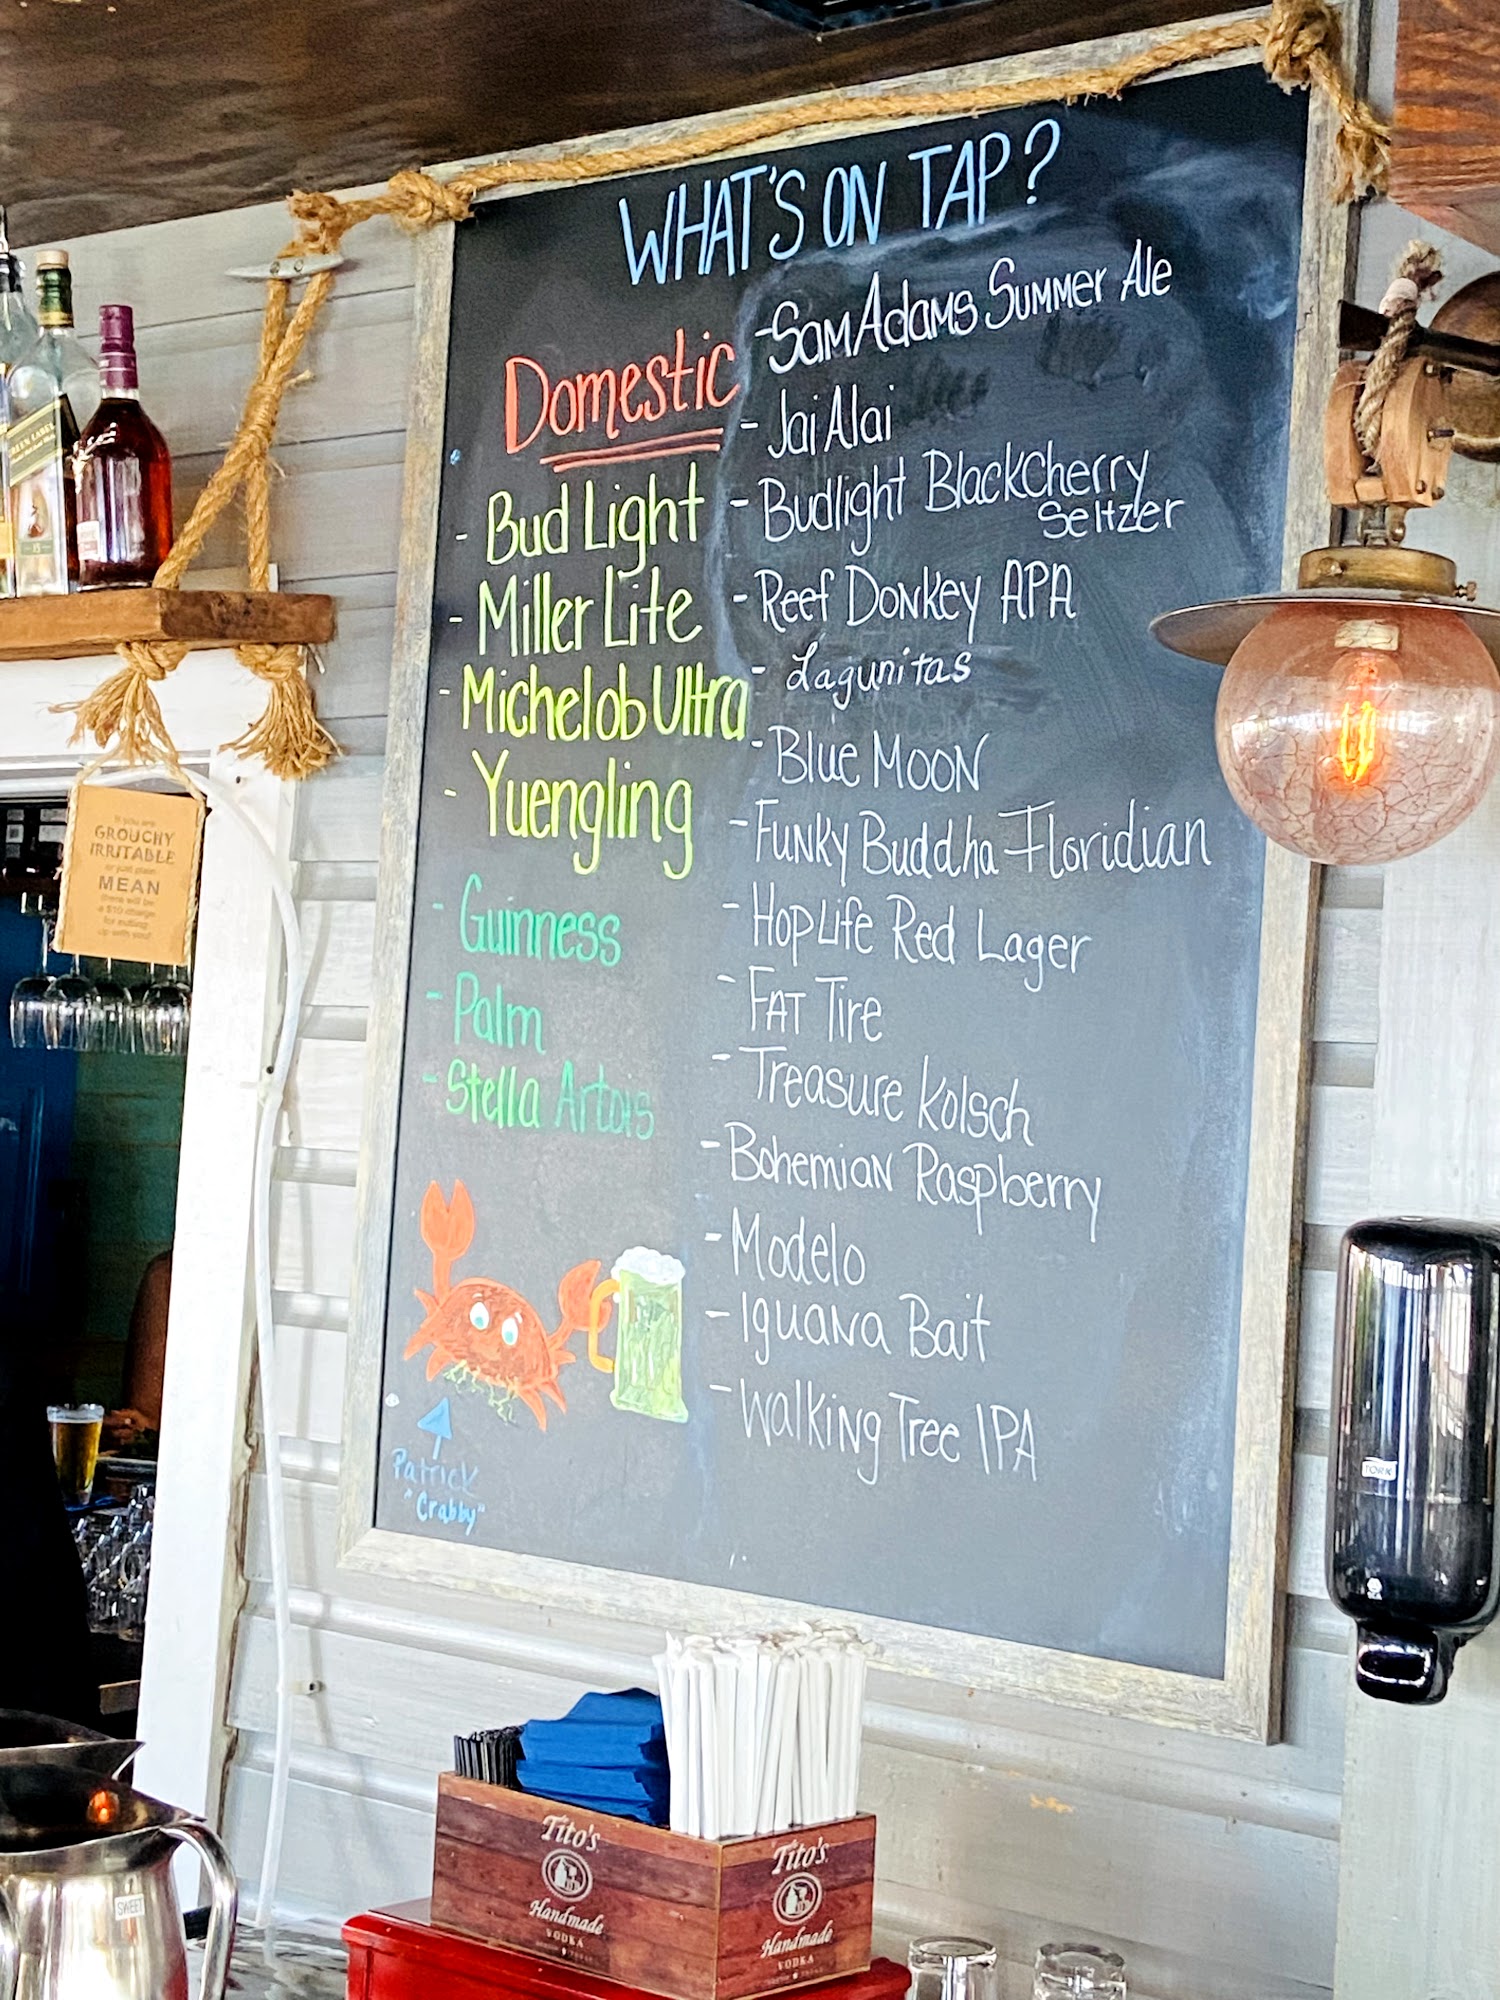 WHAT'S ON TAP?
Domestic
- Bud Light
- Miller Lite
- Michelob Ultra
- Yuengling
- Guinness
- Palm
- Stella Artois
Patrick
"Crabby"
- Sam Adams Summer Ale
- Jai Alai
- Budlight BlackCherry
Seltzer
- Reef Donkey APA
- Lagunitas
- Blue Moon
- Funky Buddha Floridian
- Hop Life Red Lager
- Fat Tire
- Treasure Kolsch
- Bohemian Raspberry
- Modelo
- Iguana Bait
- Walking Tree IPA
If you are
GROUCHY
IRRITABLE
or just plain
MEAN
there will be
a $10 charge
for putting
up with you!
GREEN LABEL
15
TORK
Tito's
Handmade
VODKA
Tito's
Handmade
VODKA
SWEET